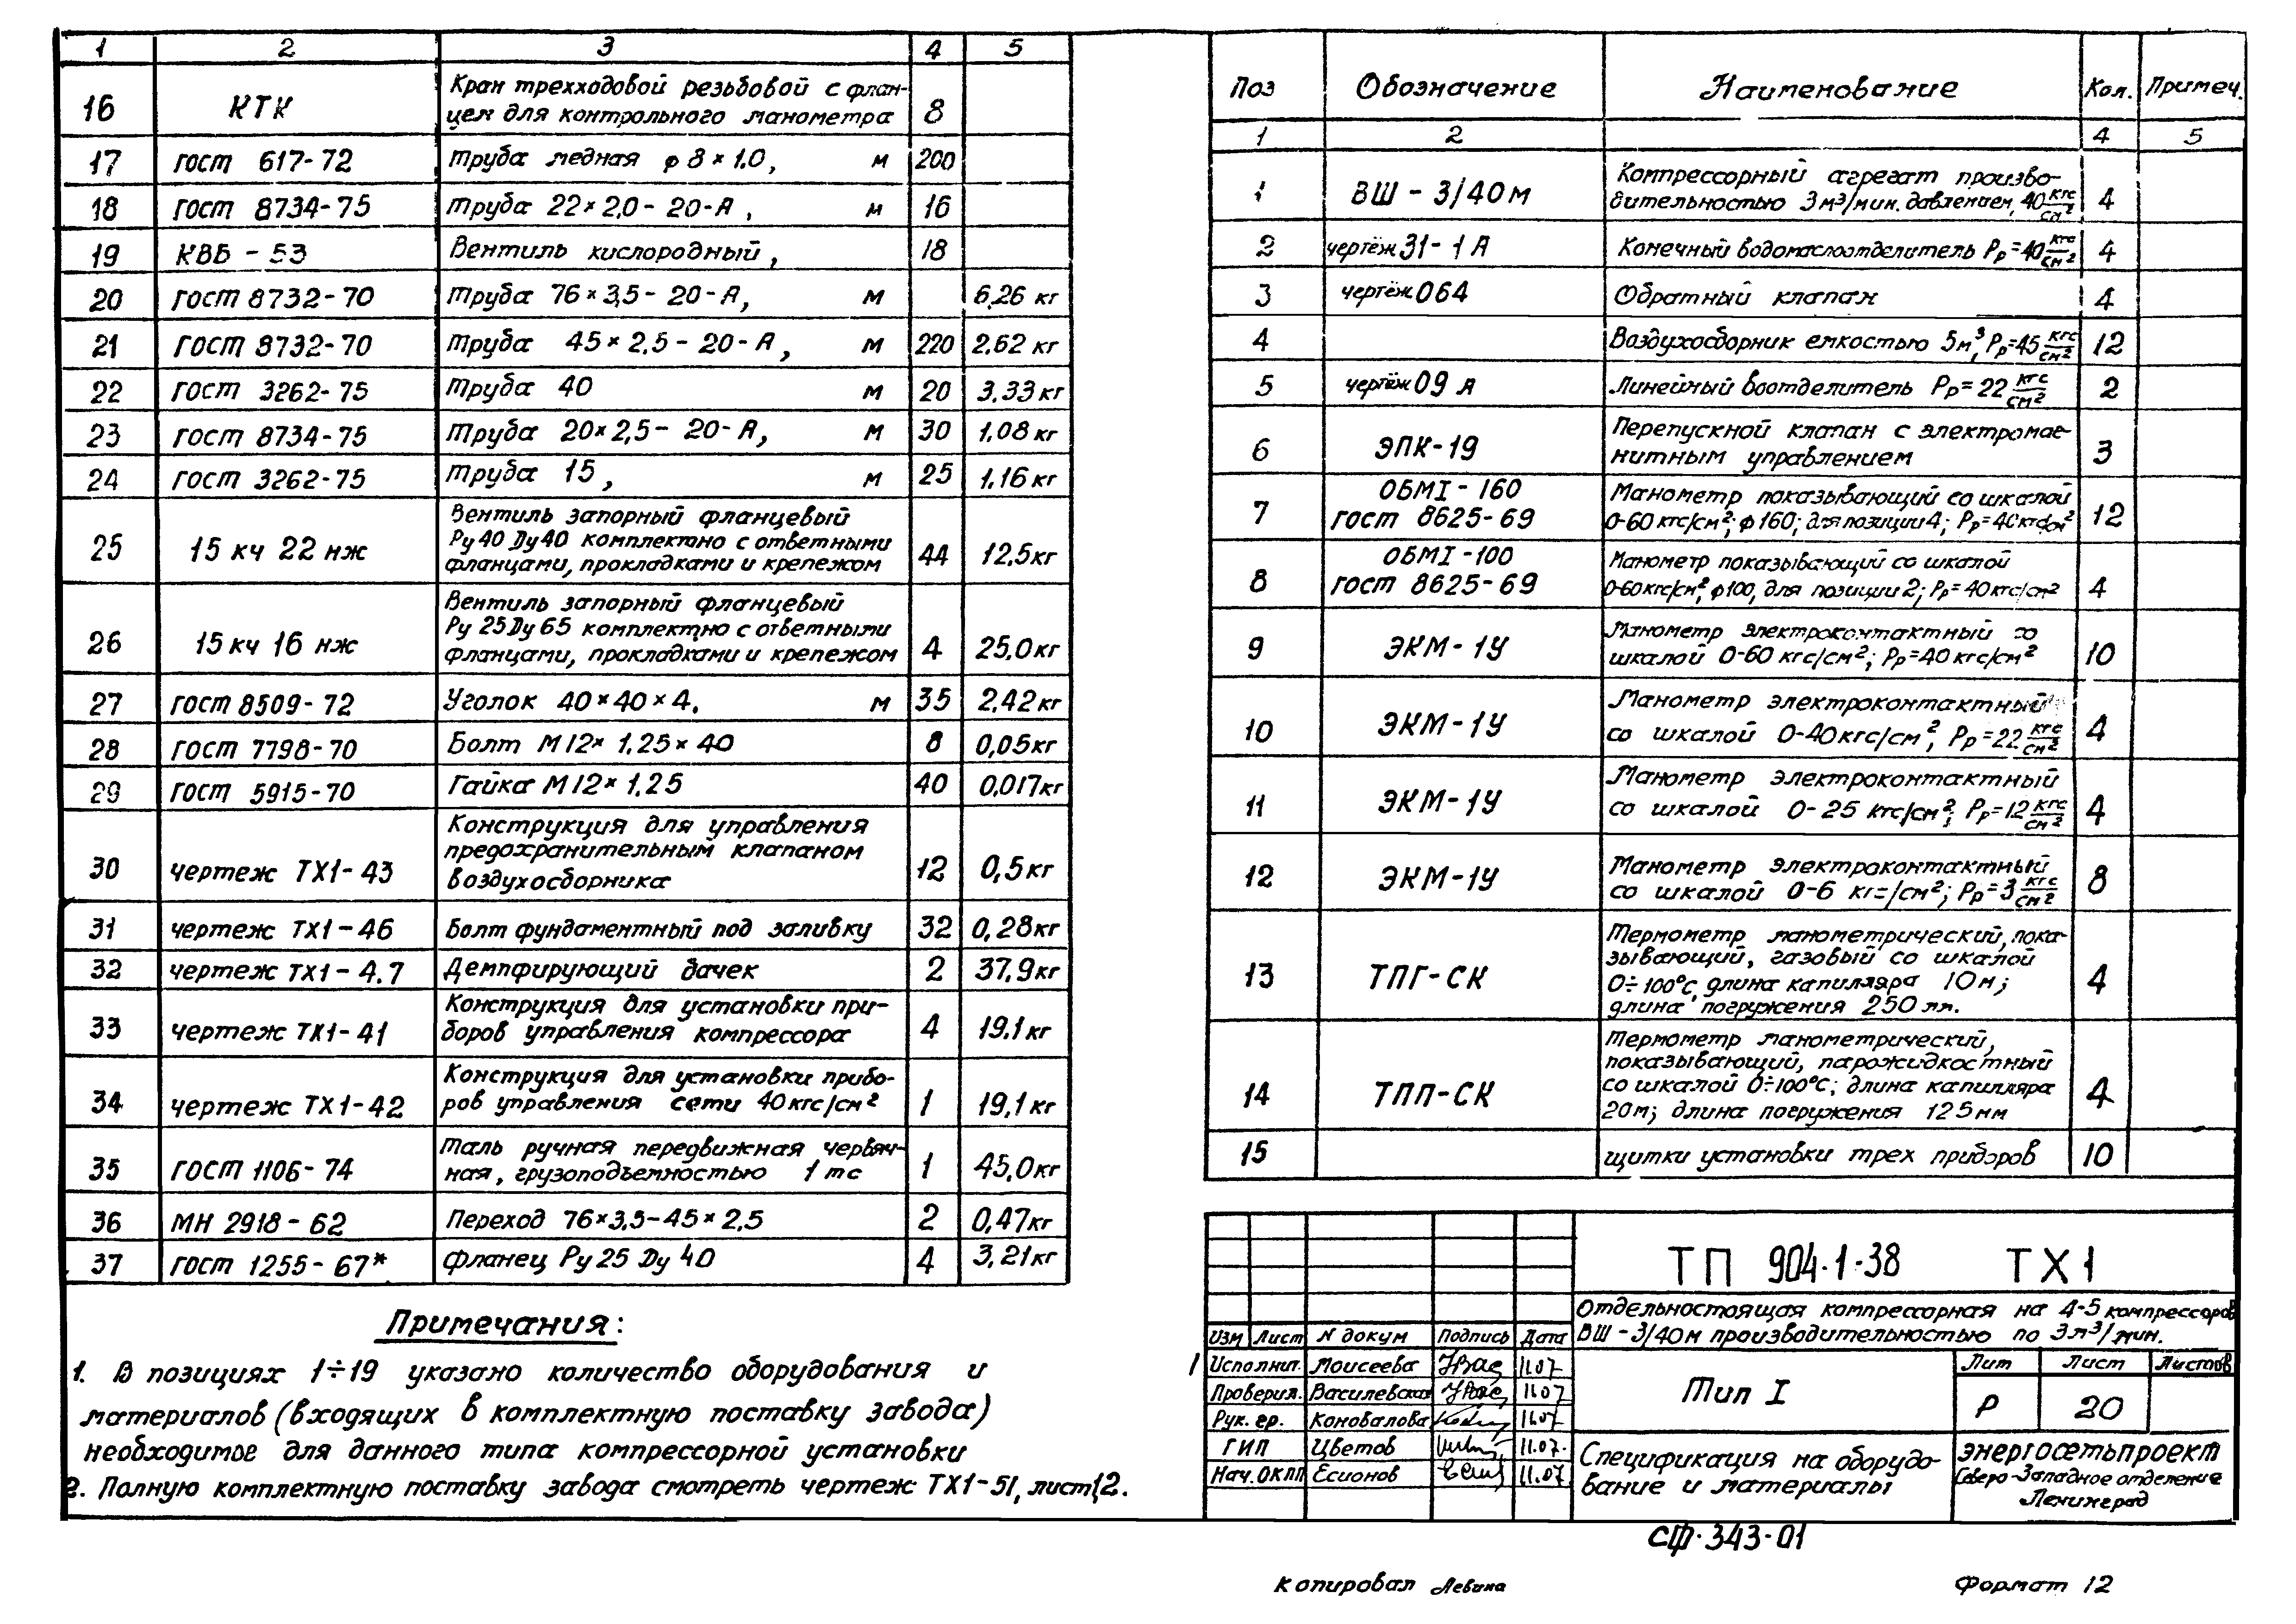 1 2 3 4 5
16 КТК Кран трехходовой резьбовой с флан-
цем для контрольного манометра 8
17 ГОСТ 617-72 Труба медная φ 8×1.0, м 200
18 ГОСТ 8734-75 Труба 22×2,0-20-А, м 16
19 КВБ-53 Вентиль кислородный, 18
20 ГОСТ 8732-70 Труба 76×3,5-20-А, м 6.26 кг
21 ГОСТ 8732-70 Труба 45×2,5-20-А, м 220 2.62 кг
22 ГОСТ 3262-75 Труба 40 м 20 3.33 кг
23 ГОСТ 8734-75 Труба 20×2,5-20-А, м 30 1,08 кг
24 ГОСТ 3262-75 Труба 15, м 25 1,16 кг
25 15 кч 22 нж Вентиль запорный фланцевый
Ру 40 Ду 40 комплектно с ответными
фланцами, прокладками и крепежом 44 12,5кг
26 15 кч 16 нж Вентиль запорный фланцевый
Ру 25 Ду 65 комплектно с ответными
фланцами, прокладками и крепежом 4 25,0кг
27 ГОСТ 8509-72 Уголок 40×40×4, м 35 2,42кг
28 ГОСТ 7798-70 Болт М12×1,25×40 8 0,05кг
29 ГОСТ 5915-70 Гайка М12×1,25 40 0,017кг
30 чертеж ТХ1-43 Конструкция для управления
предохранительным клапаном
воздухосборника 12 0,5кг
31 чертеж ТХ1-46 Болт фундаментный под заливку 32 0,28кг
32 чертеж ТХ1-4.7 Демпфирующий бачек 2 37,9кг
33 чертеж ТХ1-41 Конструкция для установки при-
боров управления компрессора 4 19.1кг
34 чертеж ТХ1-42 Конструкция для установки прибо-
ров управления сети 40кгс/см² 1 19,1кг
35 ГОСТ 1106-74 Таль ручная передвижная червяч-
ная, грузоподъемностью 1тс 1 45,0кг
36 МН 2918-62 Переход 76×3,5-45×2,5 2 0,47кг
37 ГОСТ 1255-67* Фланец Ру 25 Ду 40 4 3,21кг
Примечания:
1. В позициях 1÷19 указано количество оборудования и
материалов (входящих в комплектную поставку завода)
необходимое для данного типа компрессорной установки
2. Полную комплектную поставку завода смотреть чертеж ТХ1-51, лист 1,2.
Поз Обозначение Наименование Кол. Примеч.
1 2 4 5
1 ВШ-3/40м Компрессорный агрегат произво-
дительностью 3м³/мин. давлением, 40 кгс/см² 4
2 чертёж 31-1А Конечный водомаслоотделитель Рр=40 кгс/см² 4
3 чертёж 064 Обратный клапан 4
4 Воздухосборник емкостью 5м³, Рр=45 кгс/см² 12
5 чертёж 09 А Линейный воотделитель Рр=22 кгс/см² 2
6 ЭПК-19 Перепускной клапан с электромаг-
нитным управлением 3
7 ОБМI-160
ГОСТ 8625-69 Манометр показывающий со шкалой
0-60 кгс/см²; φ160; для позиции 4; Рр=40кгс/см² 12
8 ОБМI-100
ГОСТ 8625-69 Манометр показывающий со шкалой
0-60кгс/см², φ100, для позиции 2; Рр=40кгс/см² 4
9 ЭКМ-1У Манометр электроконтактный со
шкалой 0-60 кгс/см²; Рр=40 кгс/см² 10
10 ЭКМ-1У Манометр электроконтактный
со шкалой 0-40кгс/см², Рр=22 кгс/см² 4
11 ЭКМ-1У Манометр электроконтактный
со шкалой 0-25 кгс/см²; Рр=12 кгс/см² 4
12 ЭКМ-1У Манометр электроконтактный
со шкалой 0-6 кгс/см²; Рр=3 кгс/см² 8
13 ТПГ-СК Термометр манометрический, пока-
зывающий, газовый со шкалой
0÷100°С, длина капилляра 10м;
длина погружения 250 мм. 4
14 ТПП-СК Термометр манометрический,
показывающий, парожидкостный
со шкалой 0÷100°С; длина капилляра
20м; длина погружения 125мм 4
15 щитки установки трех приборов 10
ТП 904-1-38 ТХ1
Отдельностоящая компрессорная на 4-5 компрессоров
ВШ-3/40м производительностью по 3м³/мин.
Изм Лист N докум Подпись Дата
1 Исполнит. Моисеева 11.07
Проверил. Василевская 11.07
Рук. гр. Коновалова 11.07
ГИП Цветов 11.07.
Нач.ОКПП Есионов 11.07
Тип I
Лит Лист Листов
Р 20
Спецификация на оборудо-
вание и материалы
Энергосетьпроект
Северо-Западное отделение
Ленинград
СФ-343-01
Копировал Левина Формат 12